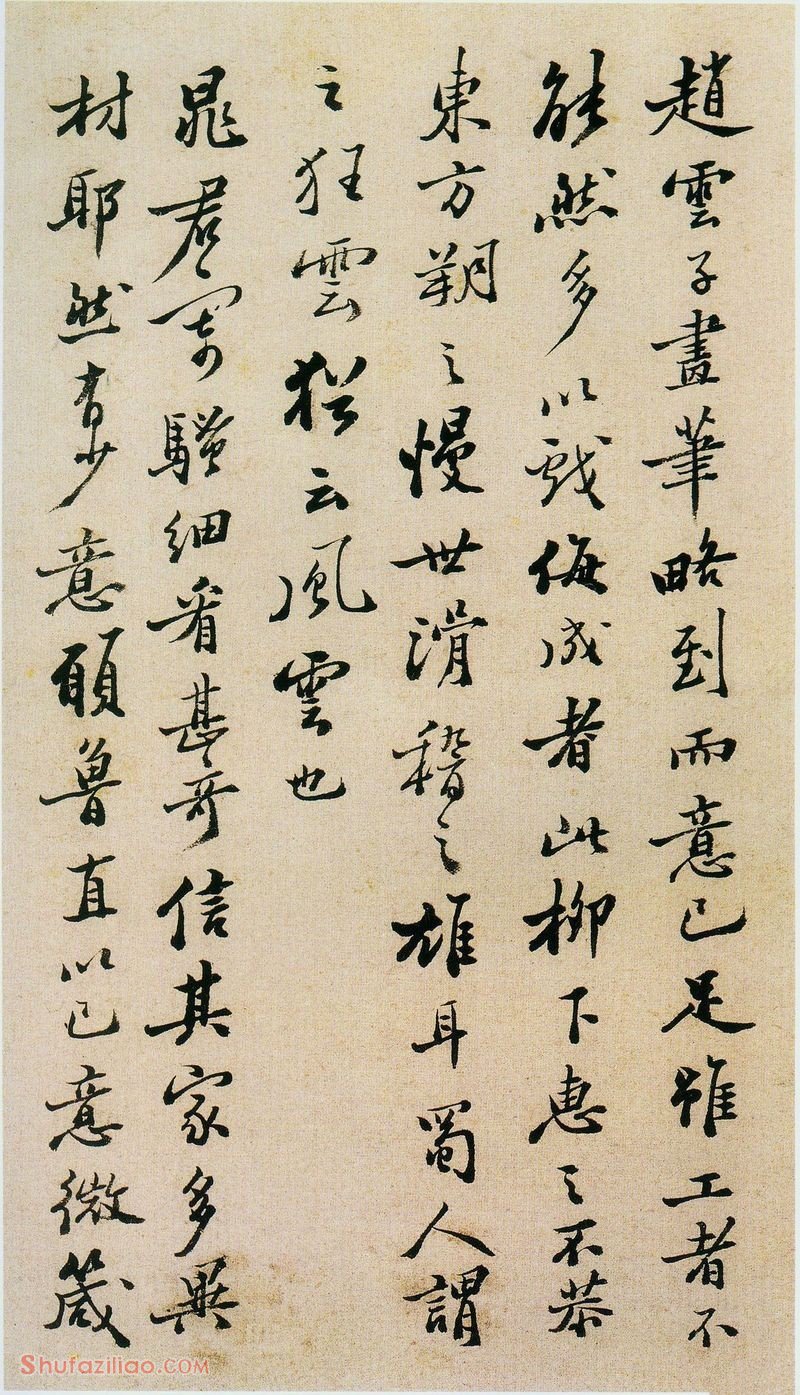 趙雲子畫筆略到而意已足雖工者不
能然多以戲侮成者此柳下惠之不恭
東方朔之慢世滑稽之雄耳蜀人謂
之狂雲猶云風雲也
晁君寄騷細看甚奇信其家多異
材耶然有少意願魯直以己意微箴
Shufaziliao.COM